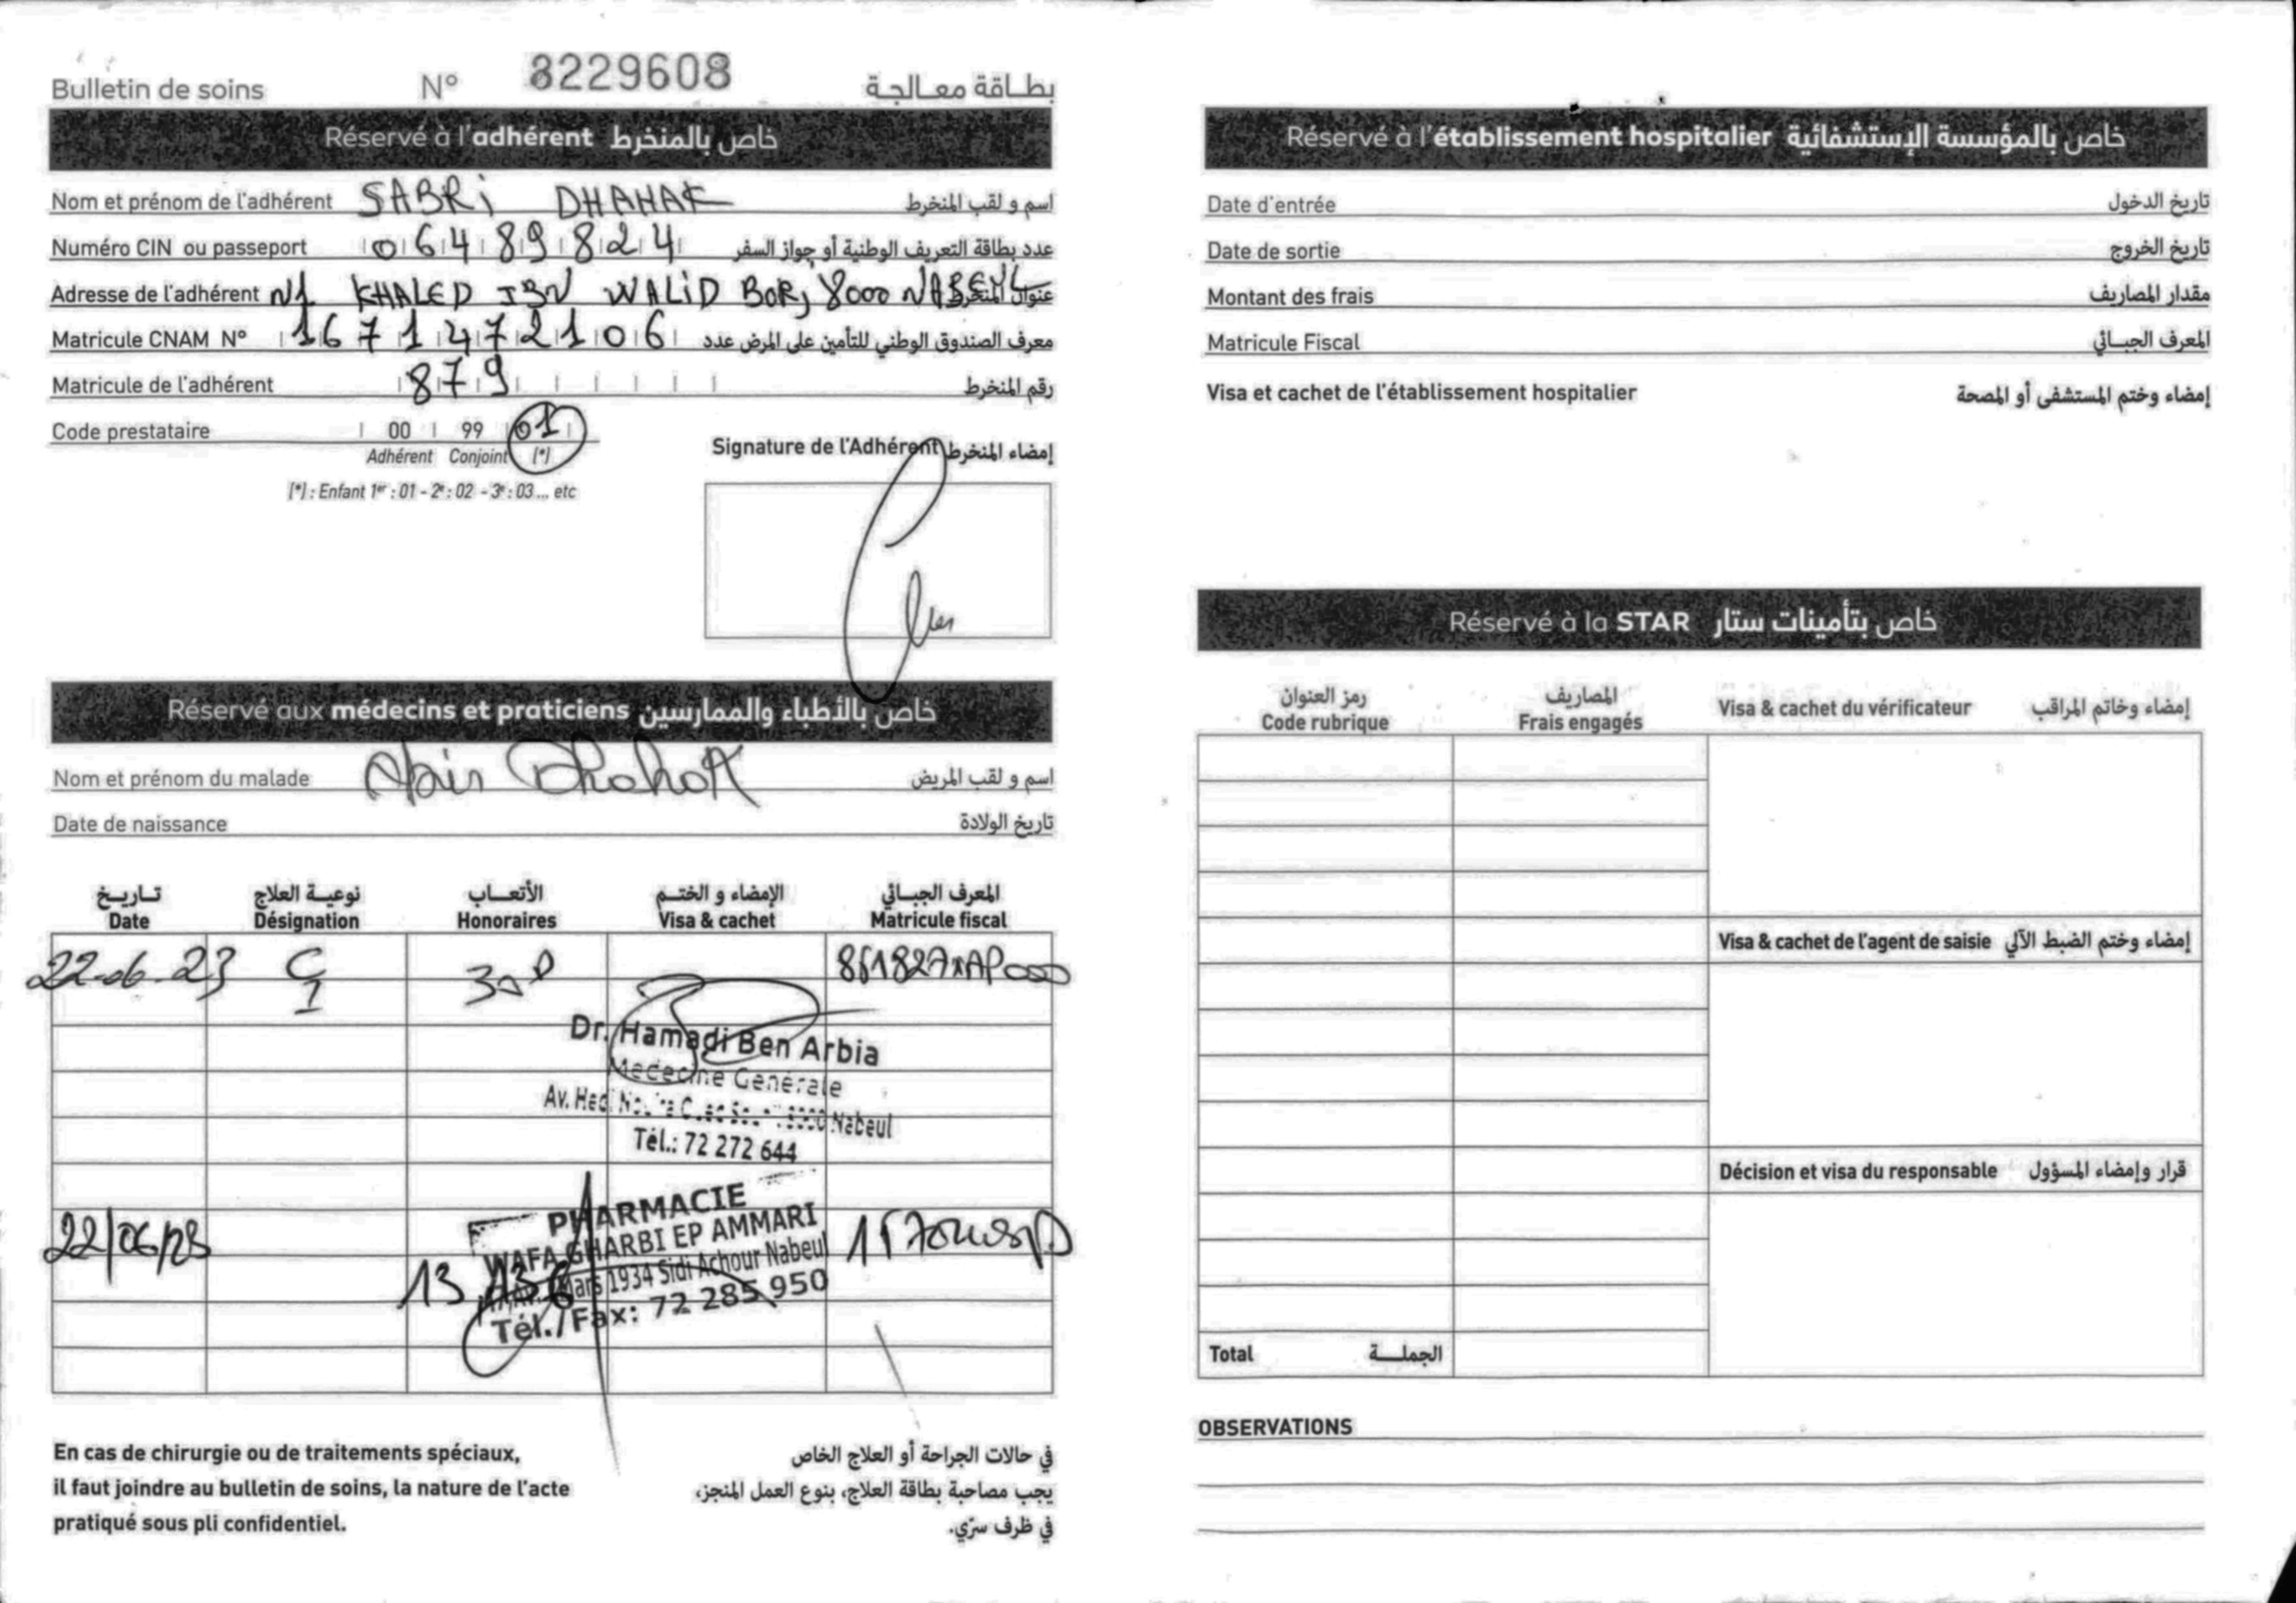 Bulletin de soins N° 8229608 بطاقة معالجة
Réservé à l'adhérent خاص بالمنخرط
Nom et prénom de l'adhérent SABRi DHAHAK اسم و لقب المنخرط
Numéro CIN ou passeport 06489824 عدد بطاقة التعريف الوطنية أو جواز السفر
Adresse de l'adhérent N1 KHALED IBN WALiD BORJ 8000 NABEUL عنوان المنخرط
Matricule CNAM N° 1671472106 معرف الصندوق الوطني للتأمين على المرض عدد
Matricule de l'adhérent 879 رقم المنخرط
Code prestataire 00 99 01
Adhérent Conjoint (*)
(*) : Enfant 1er : 01 - 2e : 02 - 3e : 03 ... etc
Signature de l'Adhérent إمضاء المنخرط
Réservé aux médecins et praticiens خاص بالأطباء والممارسين
Nom et prénom du malade Dhahak اسم و لقب المريض
Date de naissance تاريخ الولادة
تاريخ نوعية العلاج الأتعاب الإمضاء و الختم المعرف الجبائي
Date Désignation Honoraires Visa & cachet Matricule fiscal
22-06-23 C1 30D
Dr. Hamadi Ben Arbia
Médecine Générale
Av. Hedi Nabeul
Tél.: 72 272 644
PHARMACIE
WAFA GHARBI EP AMMARI
Mars 1934 Sidi Achour Nabeul
Tél./Fax: 72 285 950
22/06/23 13
En cas de chirurgie ou de traitements spéciaux,
il faut joindre au bulletin de soins, la nature de l'acte
pratiqué sous pli confidentiel.
في حالات الجراحة أو العلاج الخاص
يجب مصاحبة بطاقة العلاج، بنوع العمل المنجز،
في ظرف سرّي.
Réservé à l'établissement hospitalier خاص بالمؤسسة الإستشفائية
Date d'entrée تاريخ الدخول
Date de sortie تاريخ الخروج
Montant des frais مقدار المصاريف
Matricule Fiscal المعرف الجبائي
Visa et cachet de l'établissement hospitalier إمضاء وختم المستشفى أو المصحة
Réservé à la STAR خاص بتأمينات ستار
رمز العنوان المصاريف
Code rubrique Frais engagés Visa & cachet du vérificateur إمضاء وخاتم المراقب
Visa & cachet de l'agent de saisie إمضاء وختم الضبط الآلي
Décision et visa du responsable قرار وإمضاء المسؤول
Total الجملة
OBSERVATIONS